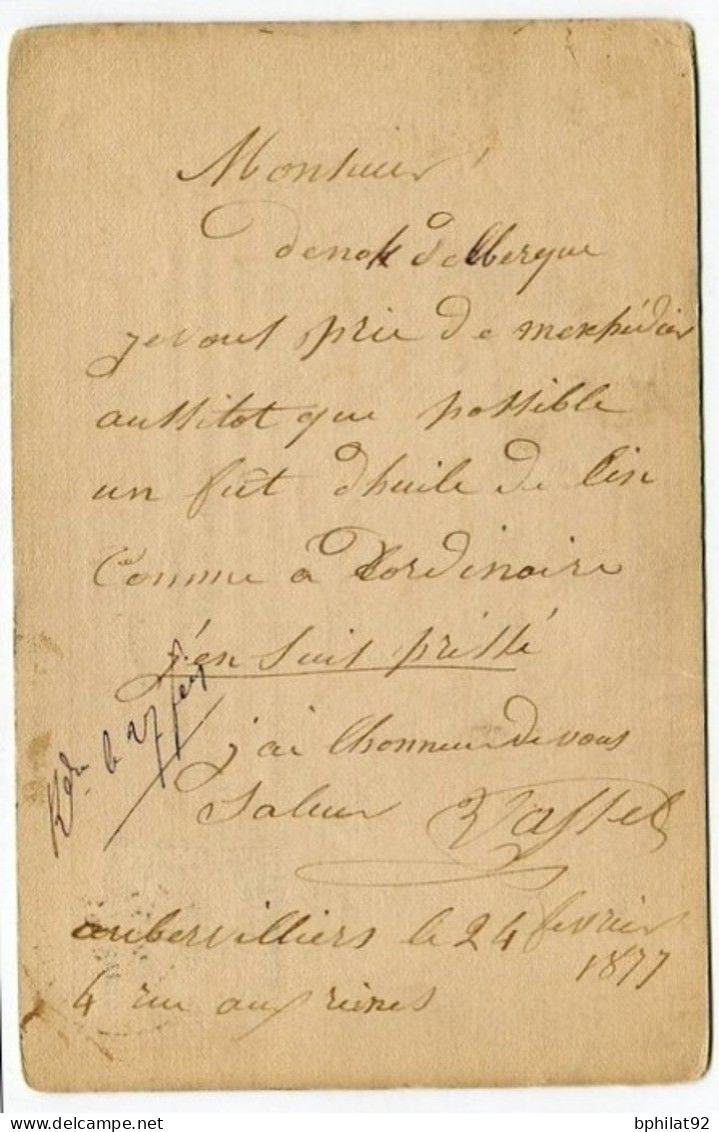 Monsieur
Delbergue
je vous prie de mexpédier
aussitot que possible
un fut dhuile de lin
Comme à Lordinaire
j'en suit préssé
j'ai lhonneur de vous
Saluer Vassel
le 27 fev
aubervilliers le 24 fevrier
1877
4 rue aux reines
bphilat92